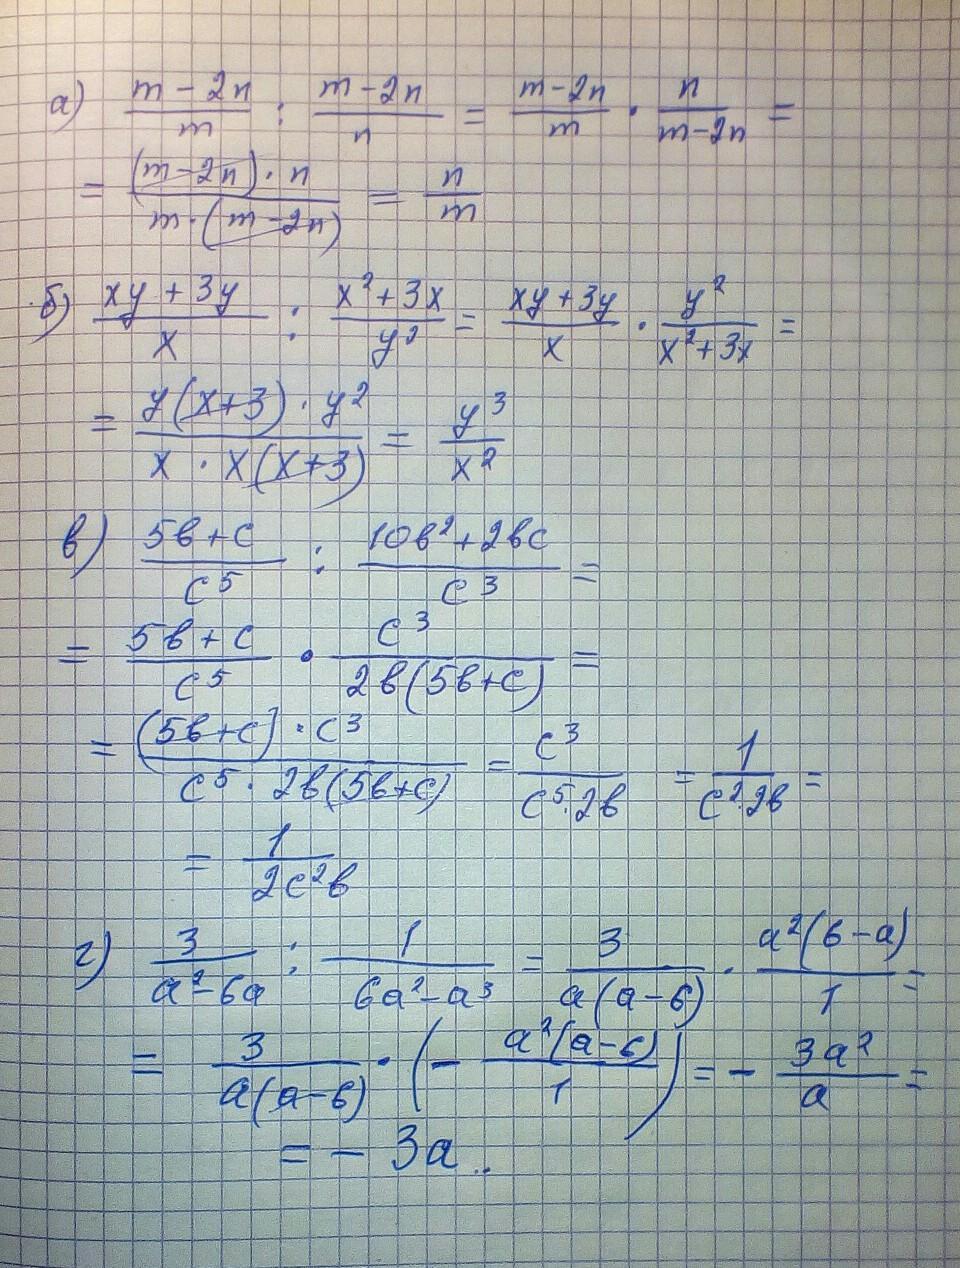 а) (m-2n)/m : (m-2n)/n = (m-2n)/m · n/(m-2n) =
= ((m-2n)·n)/(m·(m-2n)) = n/m
б) (xy+3y)/x : (x²+3x)/y² = (xy+3y)/x · y²/(x²+3x) =
= (y(x+3)·y²)/(x·x(x+3)) = y³/x²
в) (5в+с)/с⁵ : (10в²+2вс)/с³ =
= (5в+с)/с⁵ · с³/(2в(5в+с)) =
= ((5в+с)·с³)/(с⁵·2в(5в+с)) = с³/(с⁵·2в) = 1/(с²·2в) =
= 1/(2с²в)
г) 3/(a²-6a) : 1/(6a²-a³) = 3/(a(a-6)) · (a²(6-a))/1 =
= 3/(a(a-6)) · (- (a²(a-6))/1) = - 3a²/a =
= - 3a..